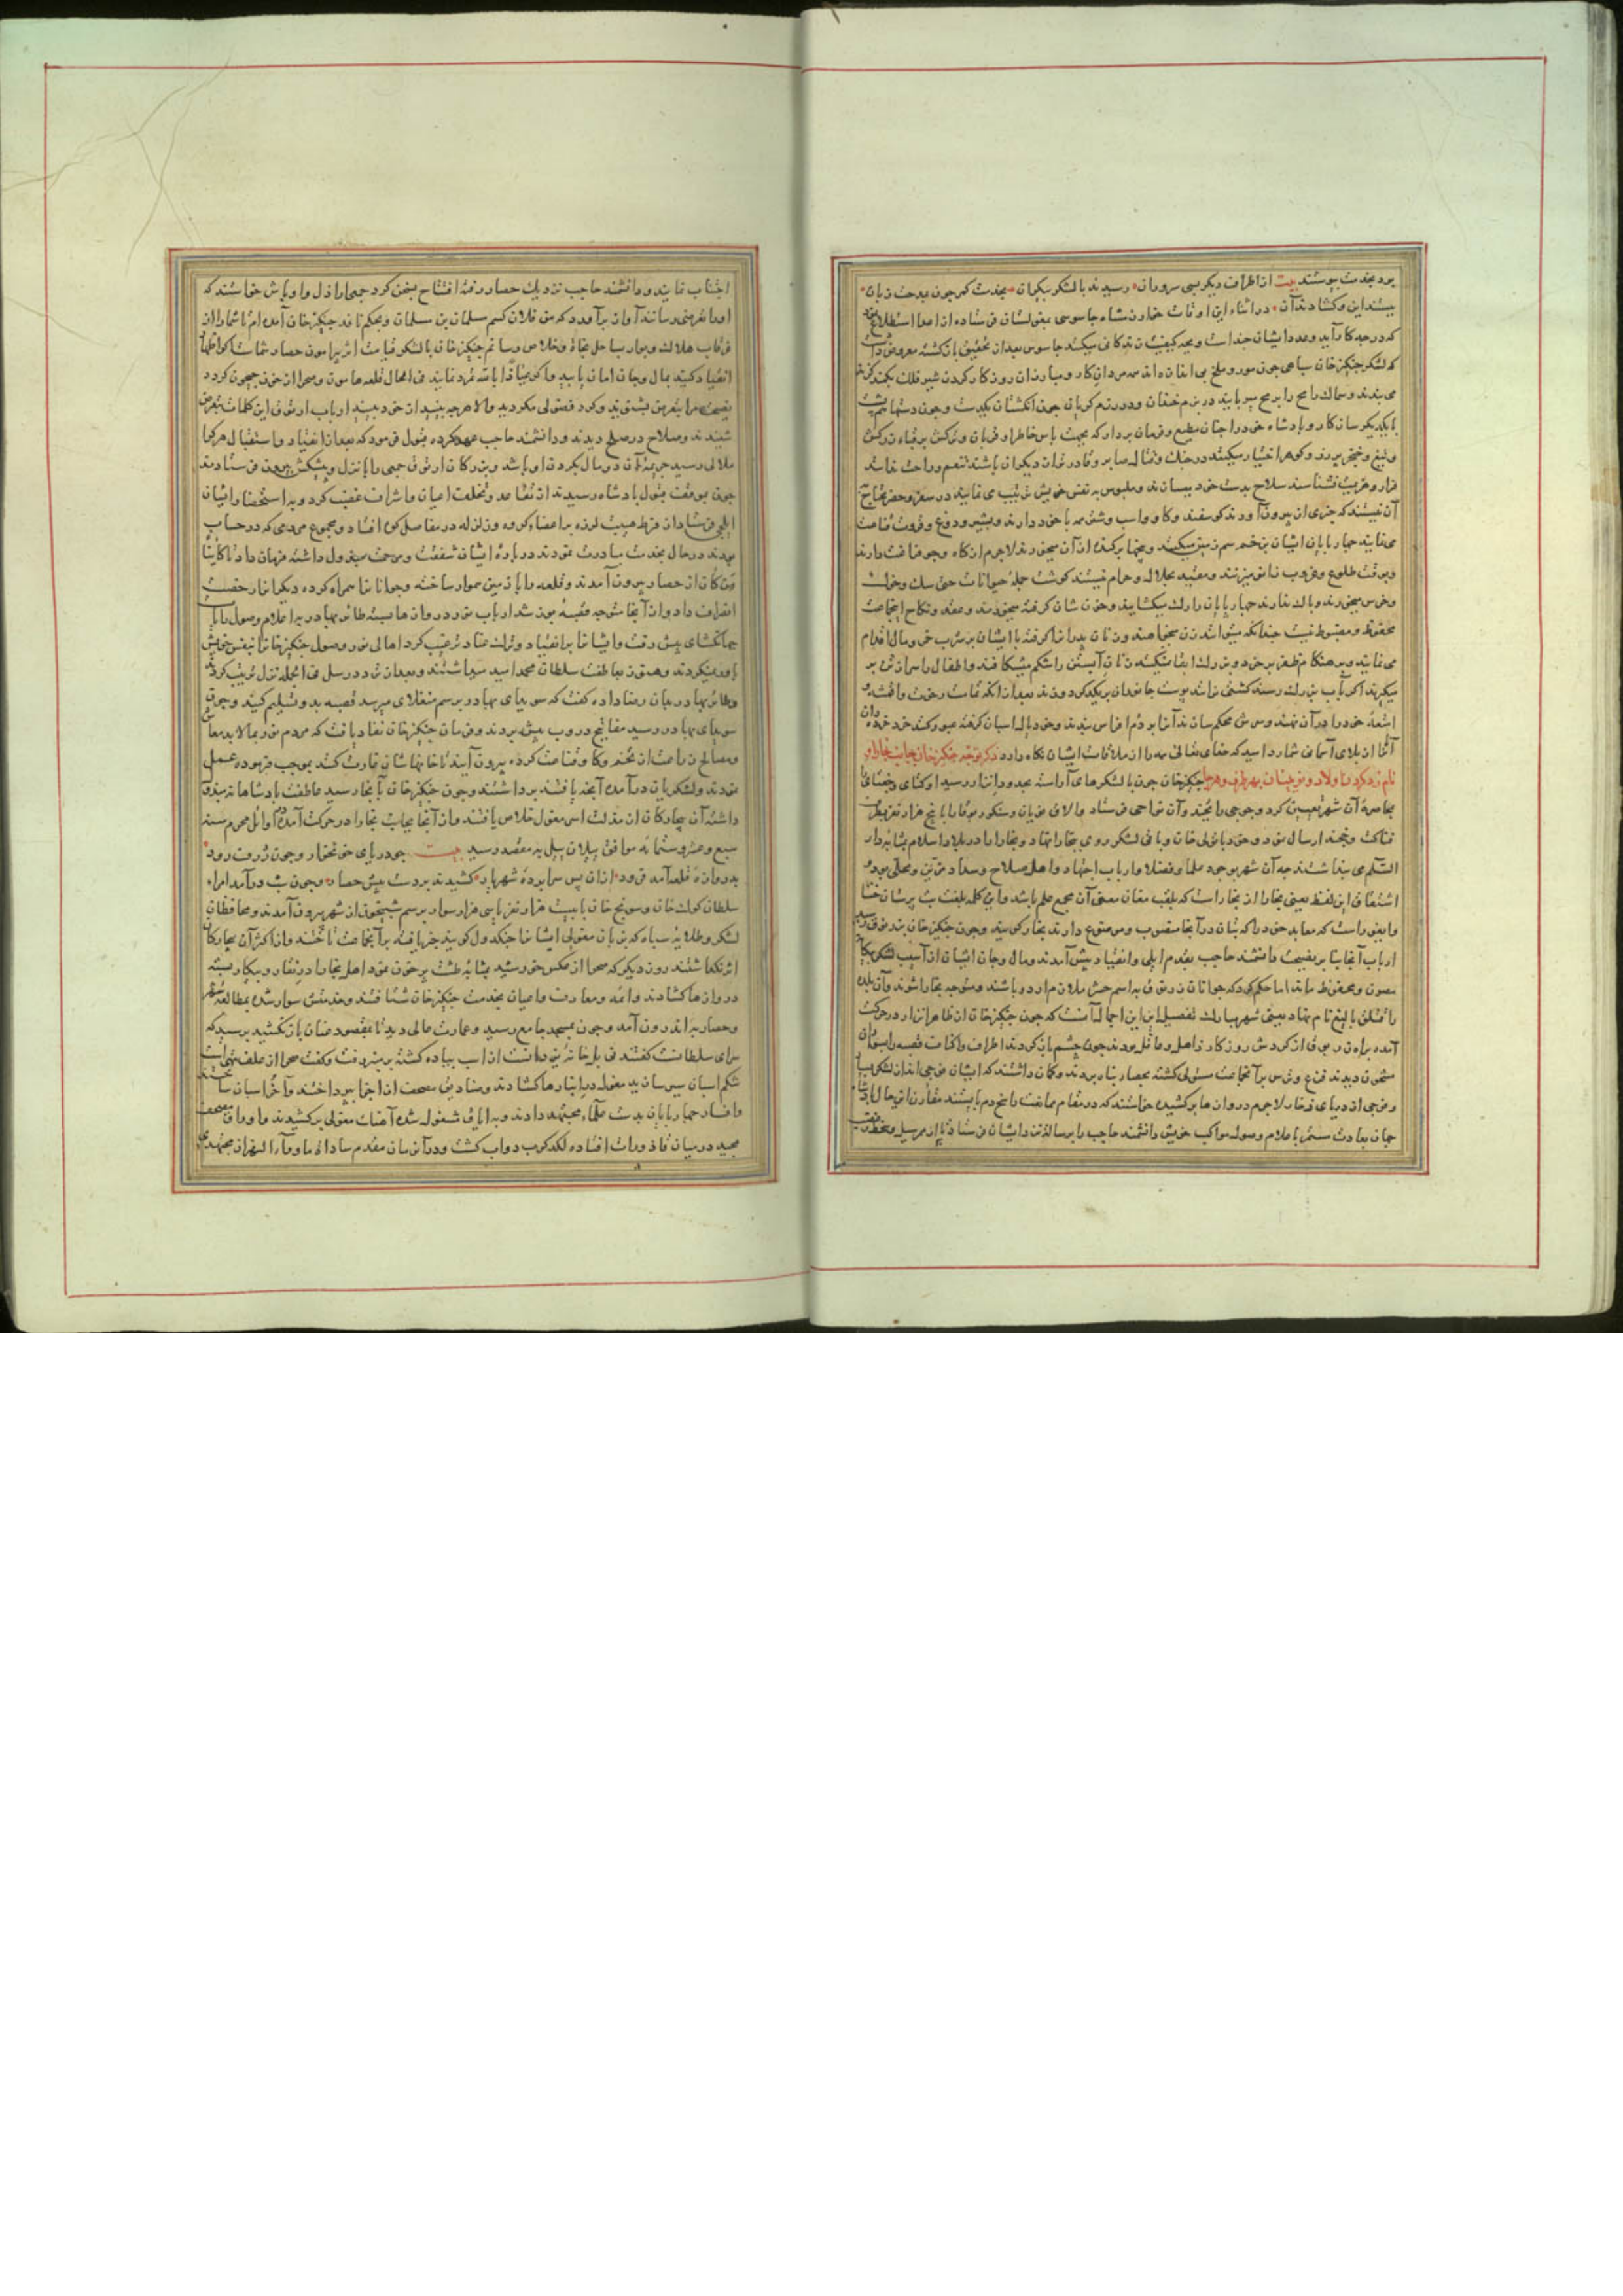 برد بخدمت پیوستند بیت از اطراف دیگر بسی سروران رسیدند با لشکر بیکران بخدمت کمر چون مدحت زبان
ببستند این و کشادند آن در اثناء این اوقات خوارزمشاه جاسوسی مغولسان فرستاده از اعدا استطلاع
که در چه کارآیند و عدد ایشان چند است و بچه کیفیت زندکانی میکنند جاسوس بعد از تحقیق بازکشته معروض داشت
که لشکر چنکیزخان سپاهی چون مور و ملخ بی
می بندند و سماک رامح را برمح میربایند در بزم و در رزم کویا ن چون انکشتان یکدست
با یکدیکر سازکار و پادشاه خود را چنان مطیع و فرمان بردار که بجهت پاس خاطر او
و تیغ و خنجر
فرار و هزیمت نشناسند سلاح بدست خود میسازند و ملبوس بنفس خویش ترتیب می نمایند در سفر و حضر محتاج
آن نیستند که چیزی از بیرون آورند کوسفند و کاو و اسب و شتر همه با خود دارند و بشیر و دوغ و قروت قناعت
می نمایند چهارپایان ایشان زمین میکنند و بیخها برکنده از آن میخورند لاجرم از کاه و جو فراغت دارند
و بوقت طلوع و غروب زانو میزنند و مقید بحلال و حرام نیستند کوشت جمله حیوانات حتی سک و خوک
و خرس میخورند و باک ندارند چهارپایان را رک میکشایند و خون شان کرفته میخورند و عقد و نکاح ایجماعت
محفوظ و مضبوط نیست
می نمایند و بر هنکام ظفر بر خرد و بزرک ابقا نمیکنند زنان آبستن را شکم میشکافند و اطفال را سر از تن بر
میکیرند اکر بآب بزرک رسند کشتی ندانند پوست جانوران بر یکدیکر دوزند بعد از آنکه تمامت رخوت و اقمشه و
امتعه خود را در آن نهند و سرش محکم سازند
آثار از بلای آسمانی شمارد امید که خدای تعالی همه را از ملاقات ایشان نکاه دارد ذکر توجه چنکیزخان بجانب بخارا و
نامزد کردن اولاد و نوینان بهر طرف و هر جا چنکیزخان چون با لشکرهای آراسته بحدود اترار رسید اوکتای و جغتای
بمحاصره آن شهر تعیین کرد و جوجی را بجند و آن نواحی فرستاد و الاق نویان و سکتور و بوقا را با پنج هزار نفر بطرف
فناکت و خجند ارسال نمود و خود با تولی خان و باقی لشکر روی ببخارا نهاد و بخارا در بلاد اسلام بمثابه دار
السلم می پنداشتند چه آن شهر بوجود علما و فضلا و ارباب اجتهاد و اهل صلاح و سداد مزین و محلی بود و
اشتقاق این لفظ یعنی بخارا از بخار است که بلغت مغان معنی آن مجمع علم باشد و این کلمه بلغت بت پرستان ختا
و ایغور است که معابد خود را که بتان در آنجا منصوب و موضوع دارند بخار کویند و چون چنکیزخان بزرنوق رسید
ارباب آنجا بنا بر نصیحت دانشمند حاجب بقدم ایلی و انقیاد پیش آمدند و مال و جان ایشان از آسیب لشکر بیکانه
مصون و محفوظ ماند اما حکم کرد که جوانان زرنوق باسم حشر ملازم اردو باشند و متوجه بخارا شوند و آن بلده
را قتلغ بالیغ نام نهاد یعنی شهر مبارک تفصیل این اجمال آنست که چون چنکیزخان از ظاهر اترار در حرکت
آمده براه زرنوق از کردش روزکار ذاهل و غافل بودند چون چشم باز کردند اطراف و اکناف قصبه را بسواران
مشحون دیدند فزع و ترس بر آنجماعت مستولی کشته بحصار پناه بردند و کمان داشتند که ایشان فوجی اند از لشکر بسیار
و موجی از دریای زخار لاجرم دروازها برکشیده خواستند که در مقام ممانعت راسخ دم بایستند مقارن این حال پادشاه
جهان بعادت مستمر باعلام وصول مواکب خویش دانشمند حاجب را برسالت نزد ایشان فرستاد تا از
اجتناب نمایند و دانشمند حاجب نزدیک حصار رفته افتتاح سخن کرد جمعی اراذل و اوباش خواستند که
او را تعرضی رسانند آواز برآورد که من فلان کسم مسلمان بن مسلمان و بحکم نافذ چنکیزخان آمده ام تا شما را از
غرقاب هلاک و بوار بساحل نجات و خلاص رسانم چنکیزخان با لشکر قیامت اثر پیرامون حصار شماست اکر اظهار
انقیاد کنید بمال و جان امان یابید و اکر عیاذا بالله تمرد نمایند فی الحال قلعه هامون و صحرا از خون جیحون کردد
نصیحت مرا بغرض مشوب نکردید و الا هرچه ببینید از خود ببینید ارباب زرنوق این کلمات بغرض
شنیدند و صلاح در صلح دیدند و دانشمند حاجب عهد کرده قبول فرمود که بعد از انقیاد و استقبال هرکرا
ملالی رسید جریمه آن در مال و کردن او باشد و بزرکان زرنوق جمعی را با نزل و پیشکش بیرون فرستادند
چون بموقف نزول پادشاه رسیدند از تقاعد و تخلف اعیان و اشراف غضب کرد و باستحضار ایشان
ایلچی فرستاد از فرط هیبت لرزه بر اعضاء کروه و زلزله در مفاصل کوه افتاد و مجموع مردمی که در حساب
بودند در حال بخدمت مبادرت نمودند و درباره ایشان شفقت و مرحمت مبذول داشته فرمان داد تا کاینا
من کان از حصار بیرون آمدند و قلعه را با زمین هموار ساخته و جوانان را همراه کرده دیکران را رخصت
انصراف داد و از آنجا متوجه قصبه نور شد ارباب نور دروازها بسته طائر بهادر باعلام وصول رایات
جهانکشای پیش رفت و ایشان را بر انقیاد و ترک عناد ترغیب کرد اهالی نور وصول چنکیزخان را بنفس خویش
باور نمیکردند و هنوز بعاطفت سلطان محمد امید میداشتند و بعد از تردد رسل فی الجمله نزل ترتیب کرد
و طائر بهادر بدان رضا داده کفت که سوبدای بهادر برسم منغلای میرسد قصبه بدو تسلیم کنید و چون
سوبدای بهادر رسید مفاتیح دروب پیش بردند و فرمان چنکیزخان نفاذ یافت که مردم نور بمالابد معاش
و مصالح زراعت از تخم و کاو قناعت کرده بیرون آیند تا خانهاشان غارت کنند بموجب فرموده عمل
نمودند و لشکریان درآمده آنچه یافتند برداشتند و چون چنکیزخان بآنجا رسید عاطفت پادشاهانه مبذول
داشته آن بیچارکان از مذلت اسر مغول خلاص یافتند و از آنجا بجانب بخارا در حرکت آمده اوائل محرم سنه
سبع و عشر و ستمائه موافق ییلان ییل بمقصد رسید بیت چو دریای خونخوار و چون ژرف رود
بدروازه قلعه آمد فرود از ان پس سراپرده شهریار کشیدند بر دست پیش حصار و چون شب درآمد امراء
سلطان کوک خان و سونج خان با بیست هزار نفر برسم شبیخون از شهر بیرون آمدند و محافظان
لشکر و طلایه سپاه که بزبان مغولی ایشان را کویند خبر یافته بر آنجماعت تاختند و از اکثر آن بیچارکان
اثر نکذاشتند روز دیکر که صحرا از عکس خورشید بمثابه طشت پر خون نمود اهل بخارا در نقار و پیکار بسته
دروازها کشادند و ائمه و معارف و اعیان بخدمت چنکیزخان شتافتند و خدمتش سوار شده بمطالعه شهر
و حصار باندرون آمد و چون بمسجد جامع رسید و عمارت عالی دید تا مقصوره عنان بازنکشید پرسید که
سرای سلطانست کفتند نی بل خانه یزدانست از اسب پیاده کشته بر منبر رفت و کفت صحرا از علف تهی است
شکم اسبان سیر سازید مغول در انبارها کشادند و صنادیق مصحف از اجزا بپرداختند و آخر اسبان ساختند
و افسار چهارپایان بدست علماء مجتهد دادند و شغول شده آهنک مغولی برکشیدند و اوراق مصحف
مجید در میان قاذورات افتاده لکدکوب دواب کشت و در آن زمان مقدم سادات ماوراء النهر از مجتهدی